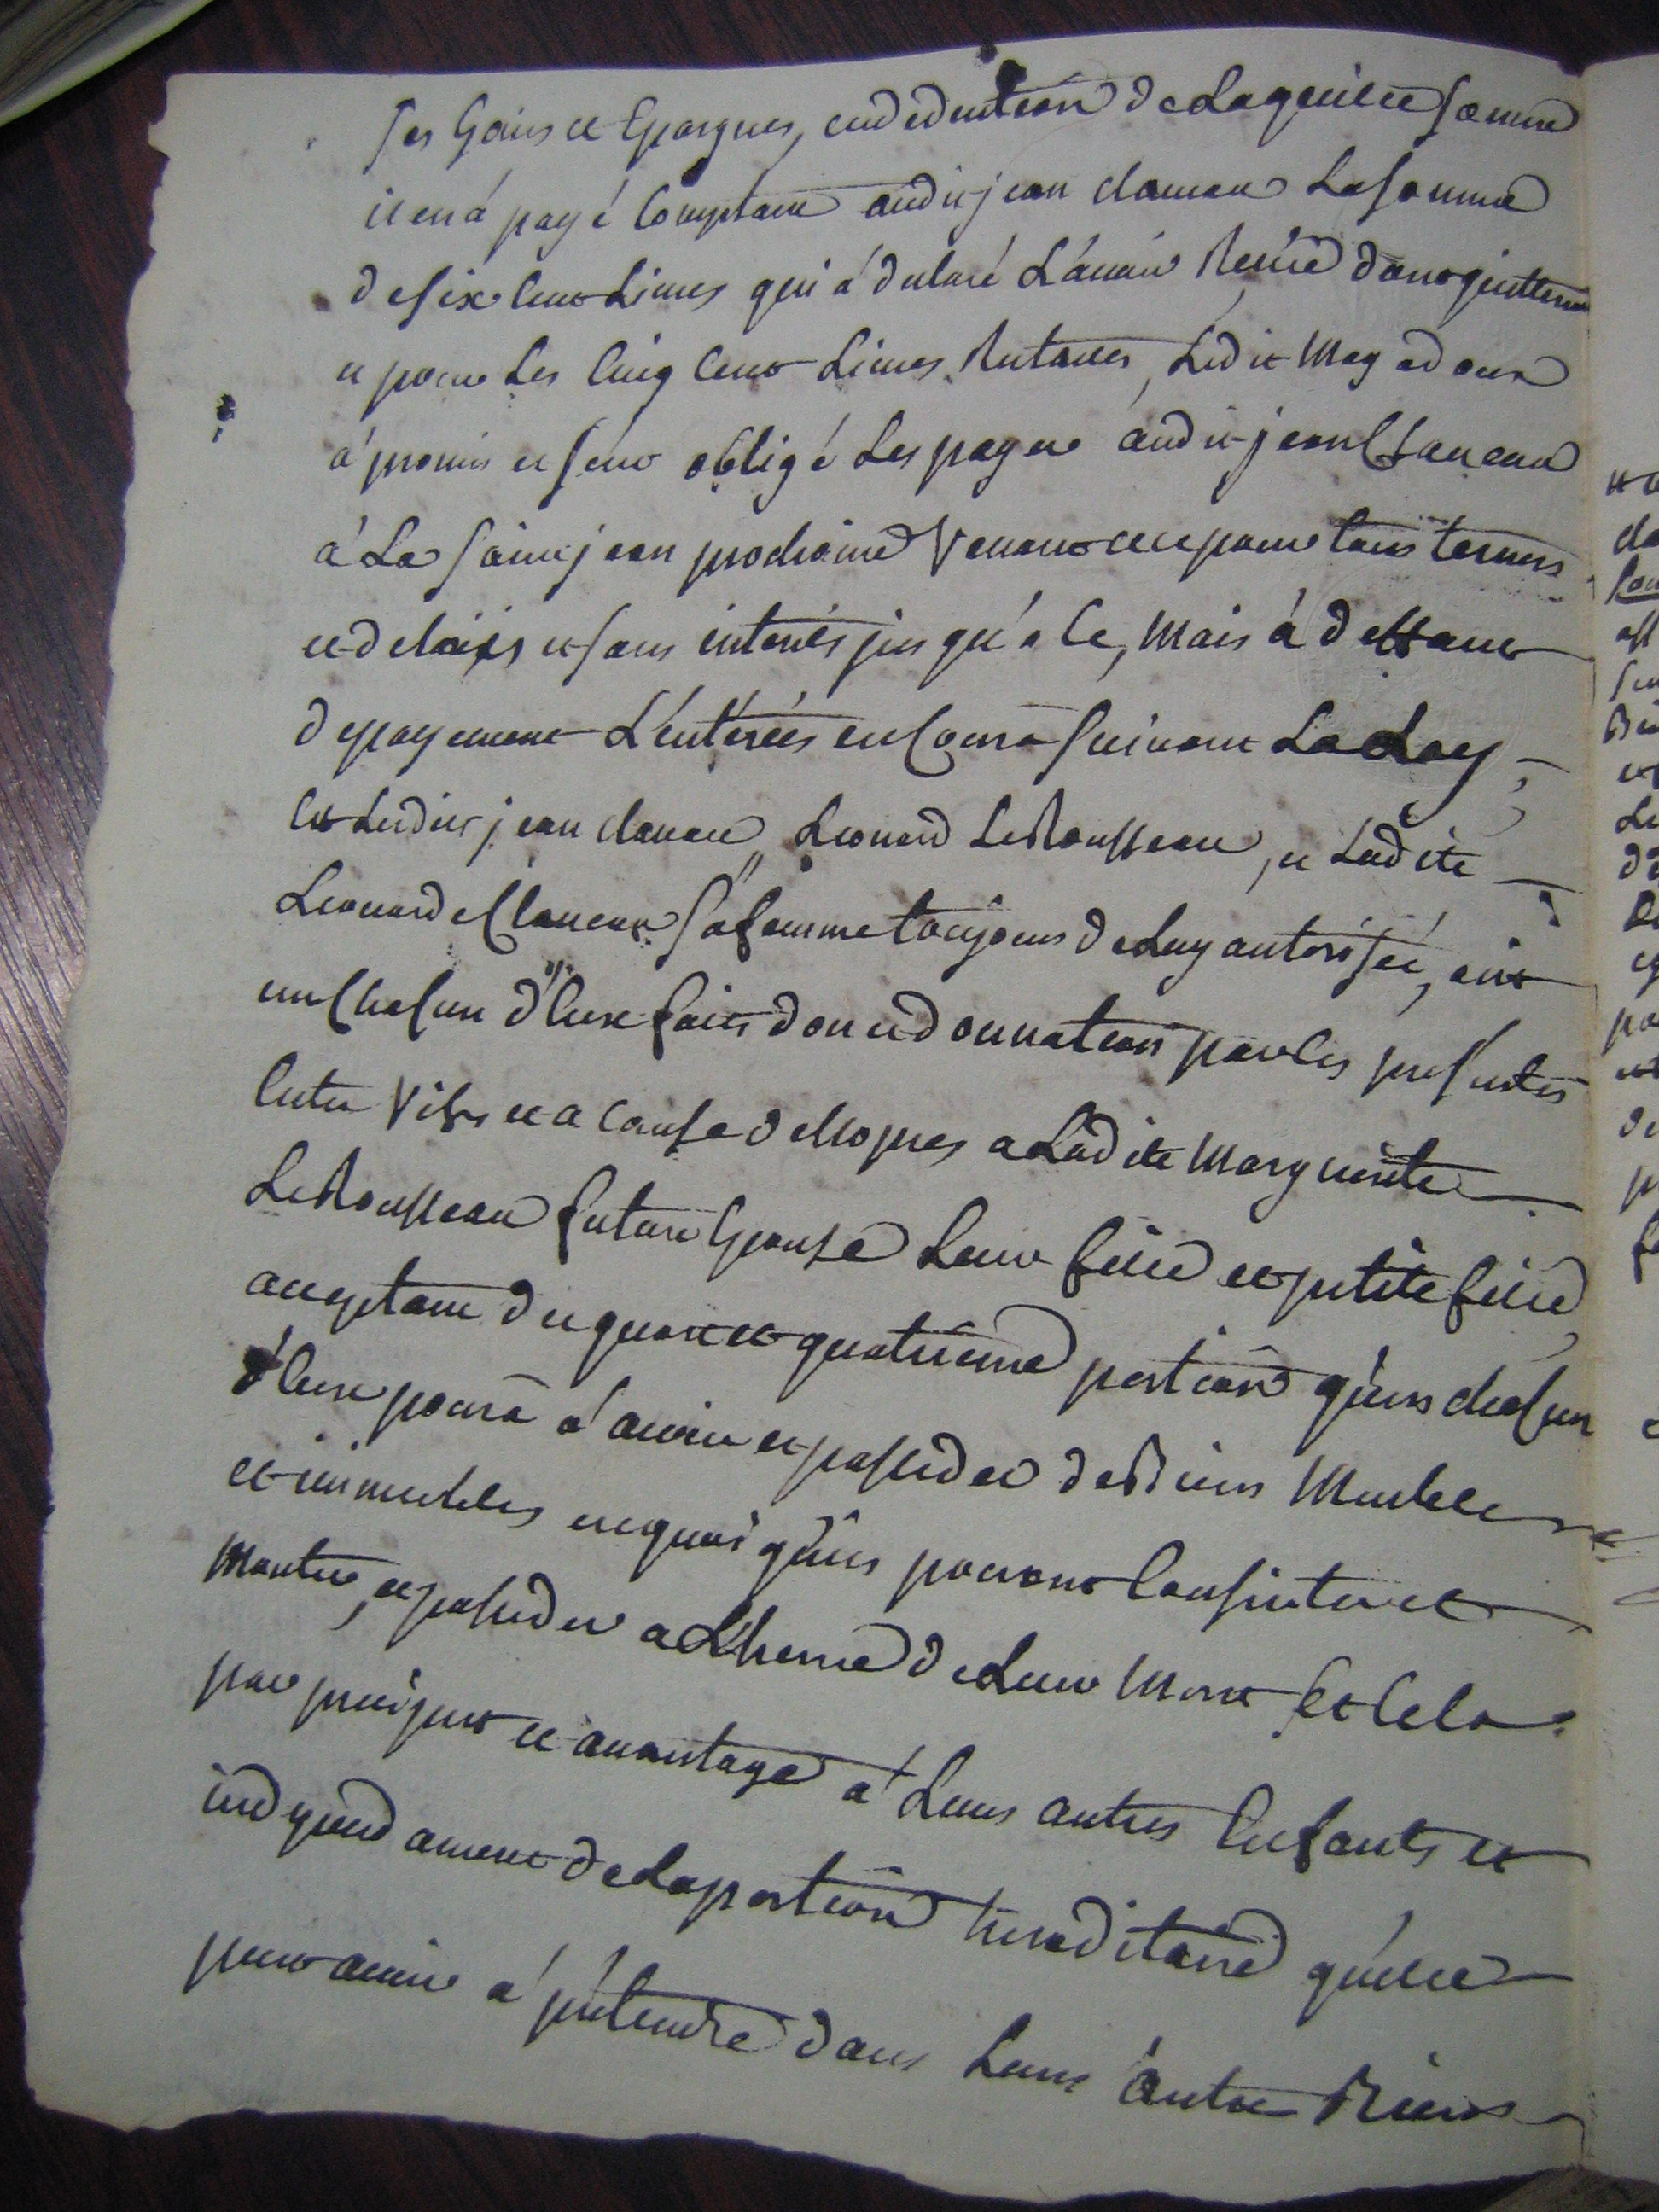 ses Gains et Epargnes, en deduction de Laquelle somme
il en á payé Comptant audit jean claveau La somme
de six Cent Livres qui á declaré L'avoir Reçue donc quittance
et pour Les Cinq Cent Livres Restantes, Ledit Magadoux
á promis et s'est obligé Les payer audit jean Claveau
á La saint jean prochaine Venant et pour tous termes
et delais et sans interrés jus qu'a Ce, Mais á deffaut
de payement L'enterées en Coura suivant La Loy
Et Lesdits jean claveau, Leonard LeRousseau, et Ladite
Leonarde Claveau sa femme toujours de Luy autorisée, ont
un Chascun d'Eux fait don et donnation par Ces presentes
Entre Vifs et a Cause de Nopces a Ladite Marguerite
LeRousseau future Epouse Leur fille et petite fille
acceptant du quart et quatrieme portion qu'un chascun
d'Eux poura á avoir et posseder de Biens Meubles
et immeubles en quoi qu'ils pouront Consister et
Monter, et posseder a L'heure de Leur Mort Et Cela
par preciput et avantage á Leurs autres Enfants et
independament de La portion hereditaire qu'elle
peut avoir á prétendre dans Leurs autres Biens